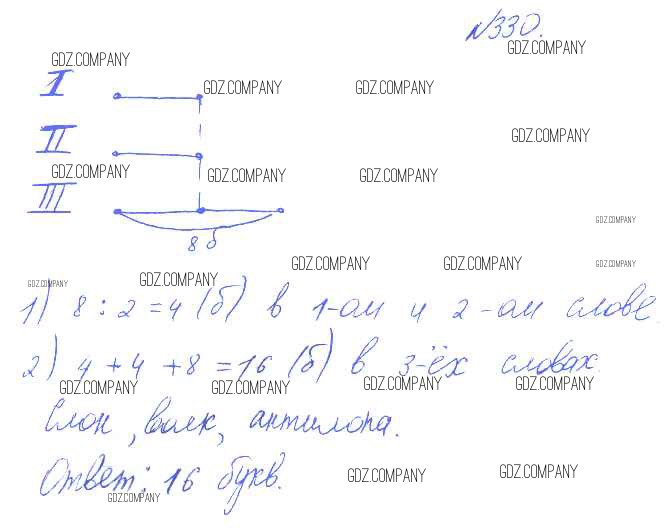 №330.
GDZ.COMPANY
GDZ.COMPANY
I
GDZ.COMPANY
GDZ.COMPANY
II
GDZ.COMPANY
GDZ.COMPANY
GDZ.COMPANY
GDZ.COMPANY
III
GDZ.COMPANY
8 б
GDZ.COMPANY
GDZ.COMPANY
GDZ.COMPANY
GDZ.COMPANY
GDZ.COMPANY
1) 8 : 2 = 4 (б) в 1-ом и 2-ом слове.
2) 4 + 4 + 8 = 16 (б) в 3-ёх словах.
GDZ.COMPANY
GDZ.COMPANY
GDZ.COMPANY
GDZ.COMPANY
Слон, волк, антилопа.
Ответ: 16 букв.
GDZ.COMPANY
GDZ.COMPANY
GDZ.COMPANY